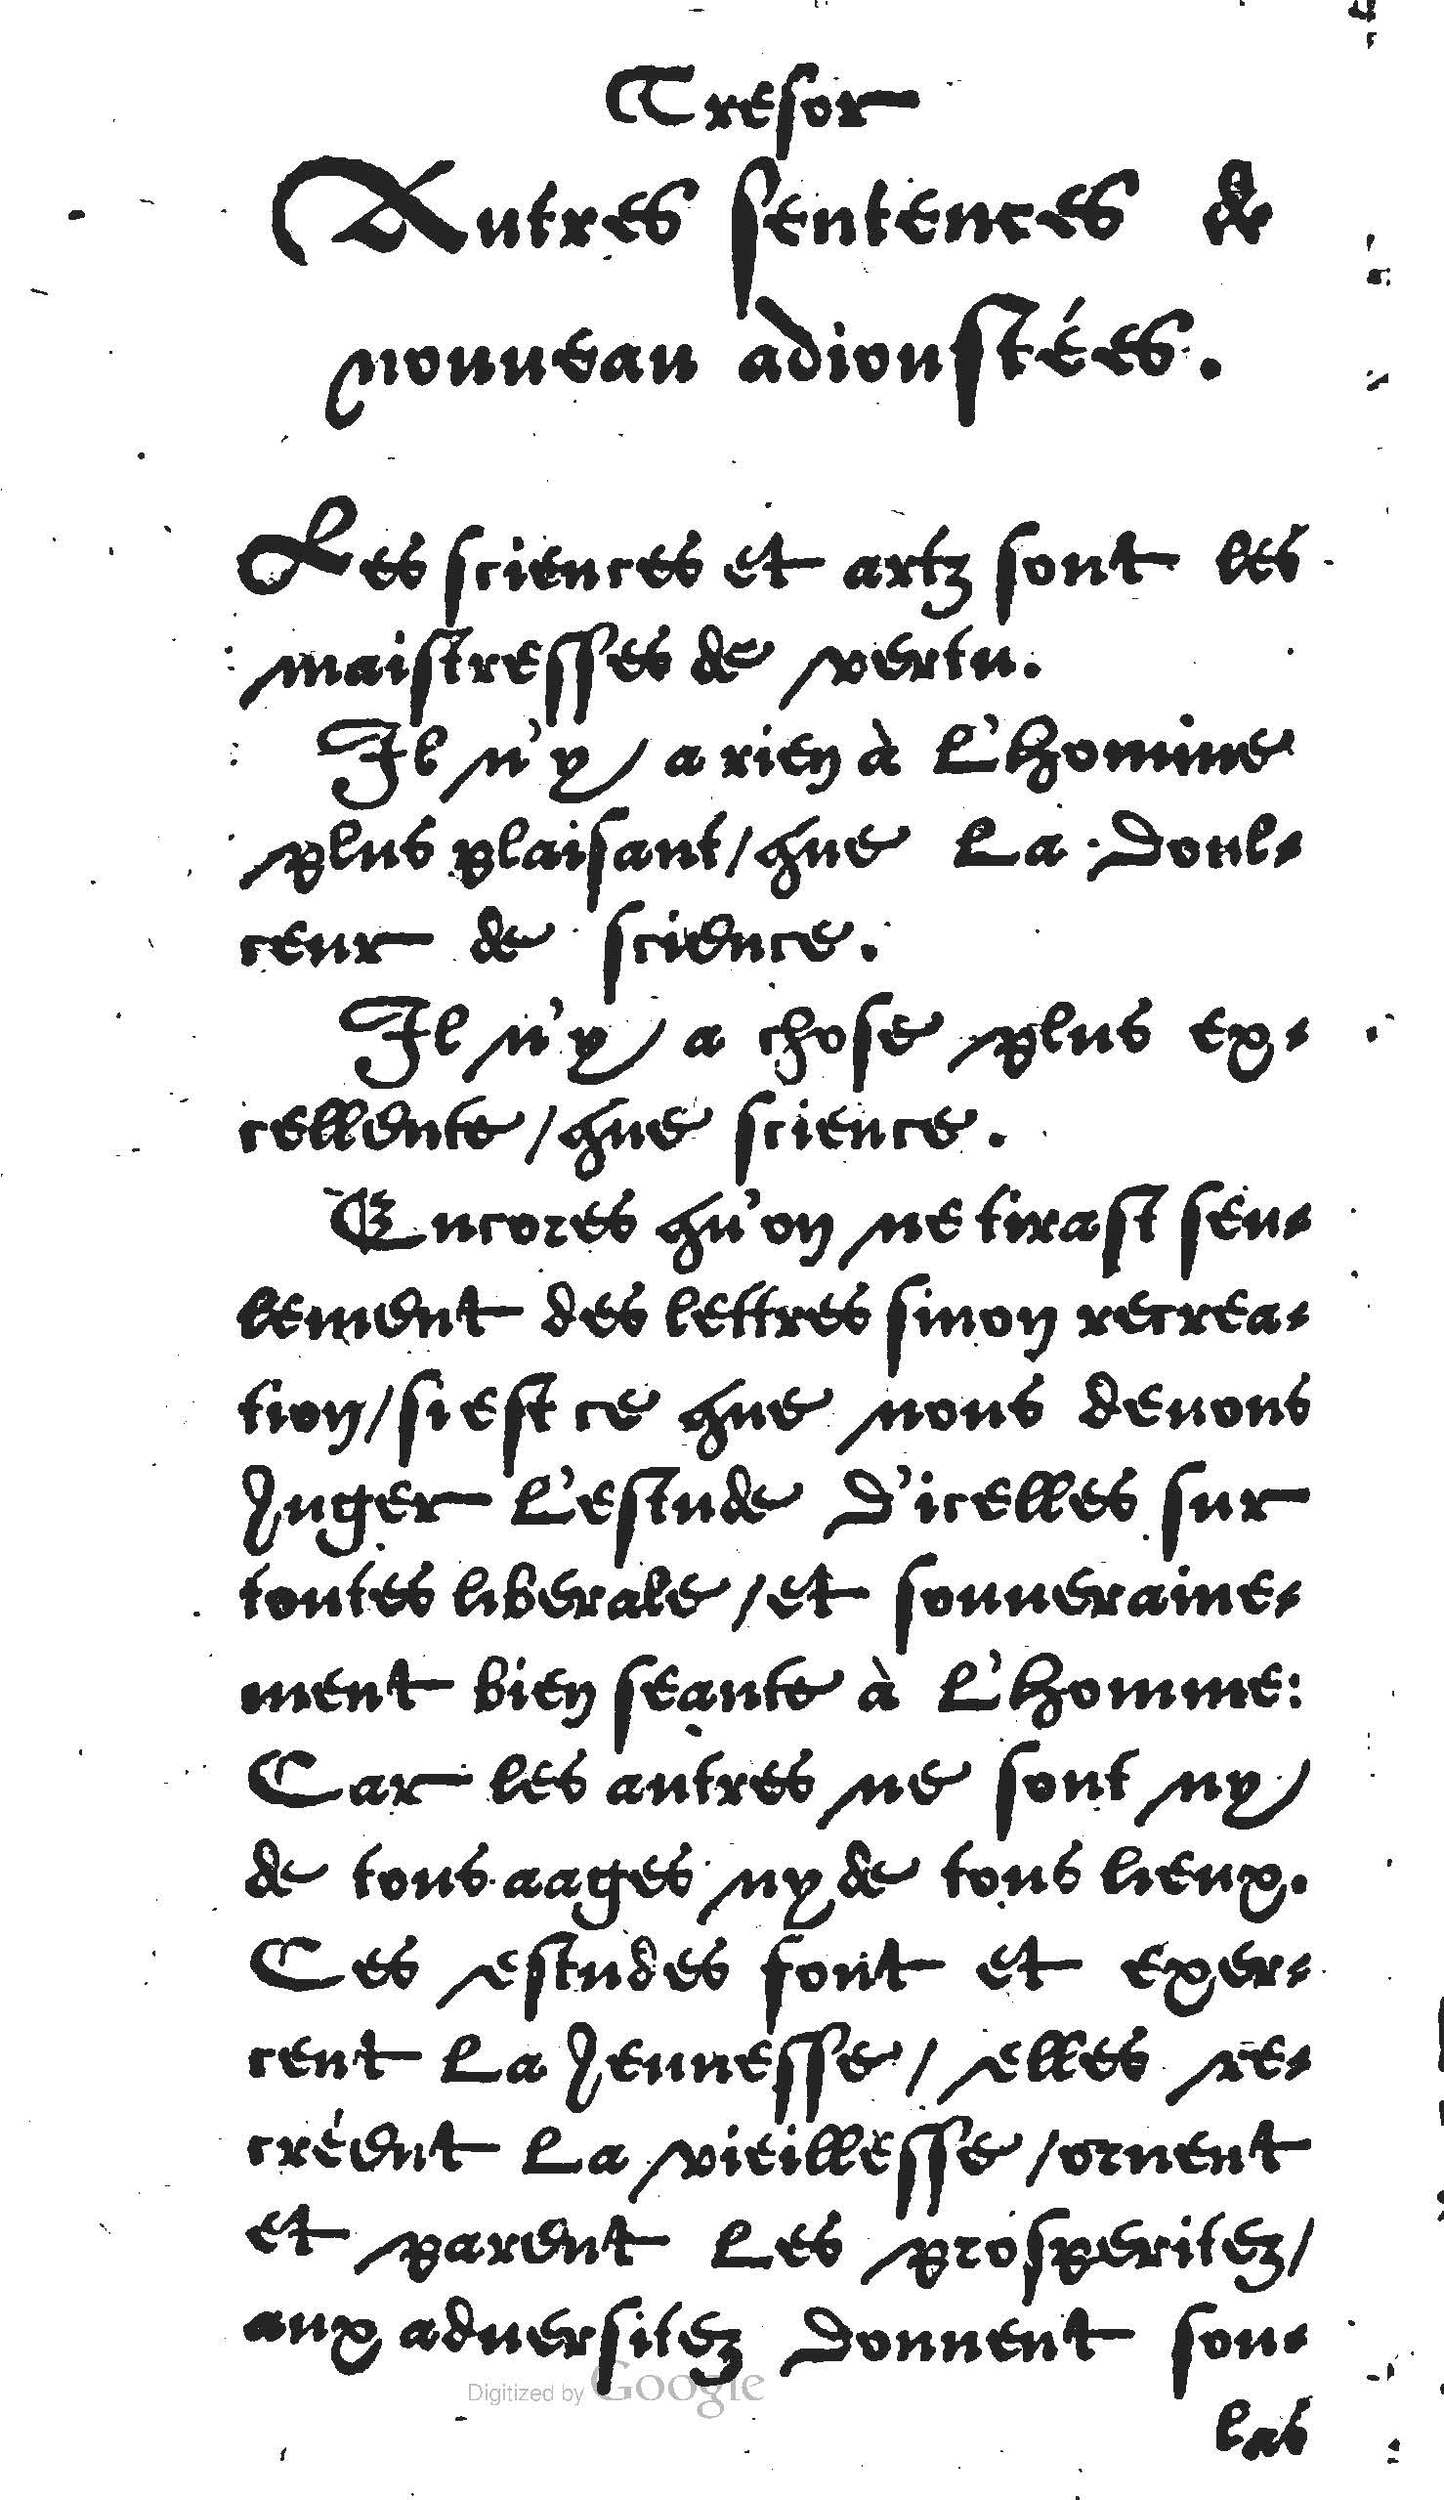 Tresor
Autres sentences de
nouueau adioustées.
Les sciences et artz sont les
maistresses de vertu.
Il n'y a rien à l'homme
plus plaisant/que la doul-
ceur de science.
Il n'y a chose plus ex-
cellente/que science.
Encores qu'on ne tirast seu-
lement des lettres sinon recrea-
tion/si est ce que nous deuons
Juger l'estude d'icelles sur
toutes liberale/et souueraine-
ment bien seante à l'homme:
Car les autres ne sont ny
de tous aages ny de tous lieux.
Ces estudes font et exer-
cent la Jeunesse/elles re-
créent la vieillesse/ornent
et parent les prosperitez/
aux aduersitez donnent sou-
las
Digitized by Google